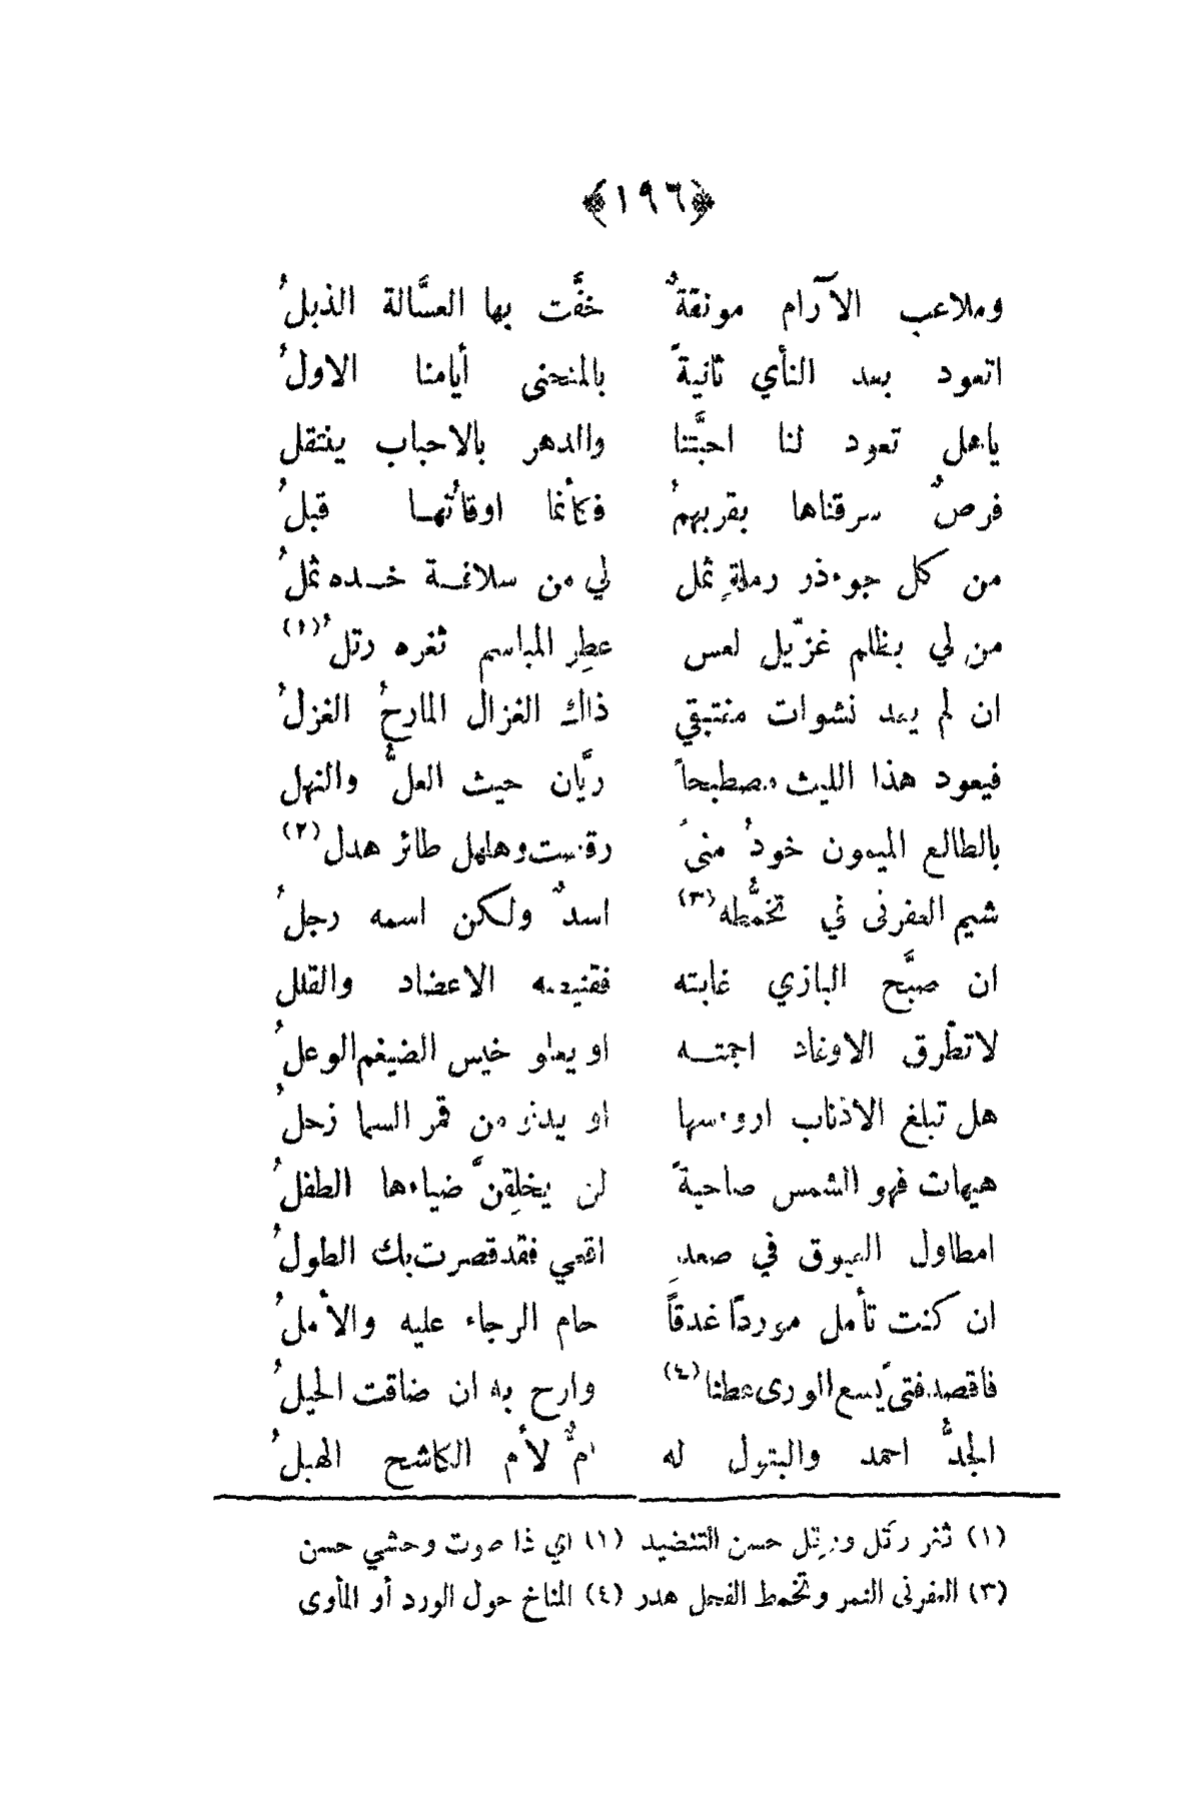 ﴿١٩٦﴾
وملاعب الآرام مونقةٌ خفَّت بها العسَّالة الذبلُ
اتعود بعد النأي ثانيةً بالمنحنى أيامنا الاولُ
ياهل تعود لنا احبَّتنا والدهر بالاحباب ينتقل
فرصٌ سرقناها بقربهمُ فكأنما اوقاتُها قبلُ
من كل جوءذر رملةٍ ثمل لي من سلافة خده ثملُ
من لي بظلم غزّيلٍ لعس عطِر المباسم ثغره رتلُ (١)
ان لم يعد نشوات مغتبقي ذاك الغزال المارحُ الغزلُ
فيعود هذا الليث مصطبحاً ريَّان حيث العلُّ والنهل
بالطالع الميمون خودُ منىً رقصت وهلهل طائر هدل (٢)
شيم العفرنى في تخمُّطه (٣) اسدٌ ولكن اسمه رجلُ
ان صبَّح البازي غابته فقنيصه الاعضاد والقلل
لاتطْرق الاوغاد اجمته او يعلو خيس الضيغم الوعلُ
هل تبلغ الاذناب اروءسها او يدنو من قمر السما زحلُ
هيهات فهو الشمس صاحيةً لن يخلِقنَّ ضياءها الطفلُ
امطاول العيوق في صعدٍ اقعي فقد قصرت بك الطولُ
ان كنت تأمل مورداً غدقاً حام الرجاء عليه والأملُ
فاقصد فتىً يسع الورى عطنا (٤) وارح به ان ضاقت الحيلُ
الجدُّ احمد والبتول له امٌّ لأم الكاشح الهبلُ
(١) ثغر رتل ورتل حسن التنضيد (١) اي ذا صوت وحشي حسن
(٣) العفرنى النمر وتخمط الفحل هدر (٤) المناخ حول الورد أو المأوى